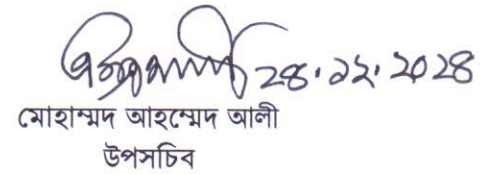 ২৪.১২.২০২৪
মোহাম্মদ আহম্মেদ আলী
উপসচিব